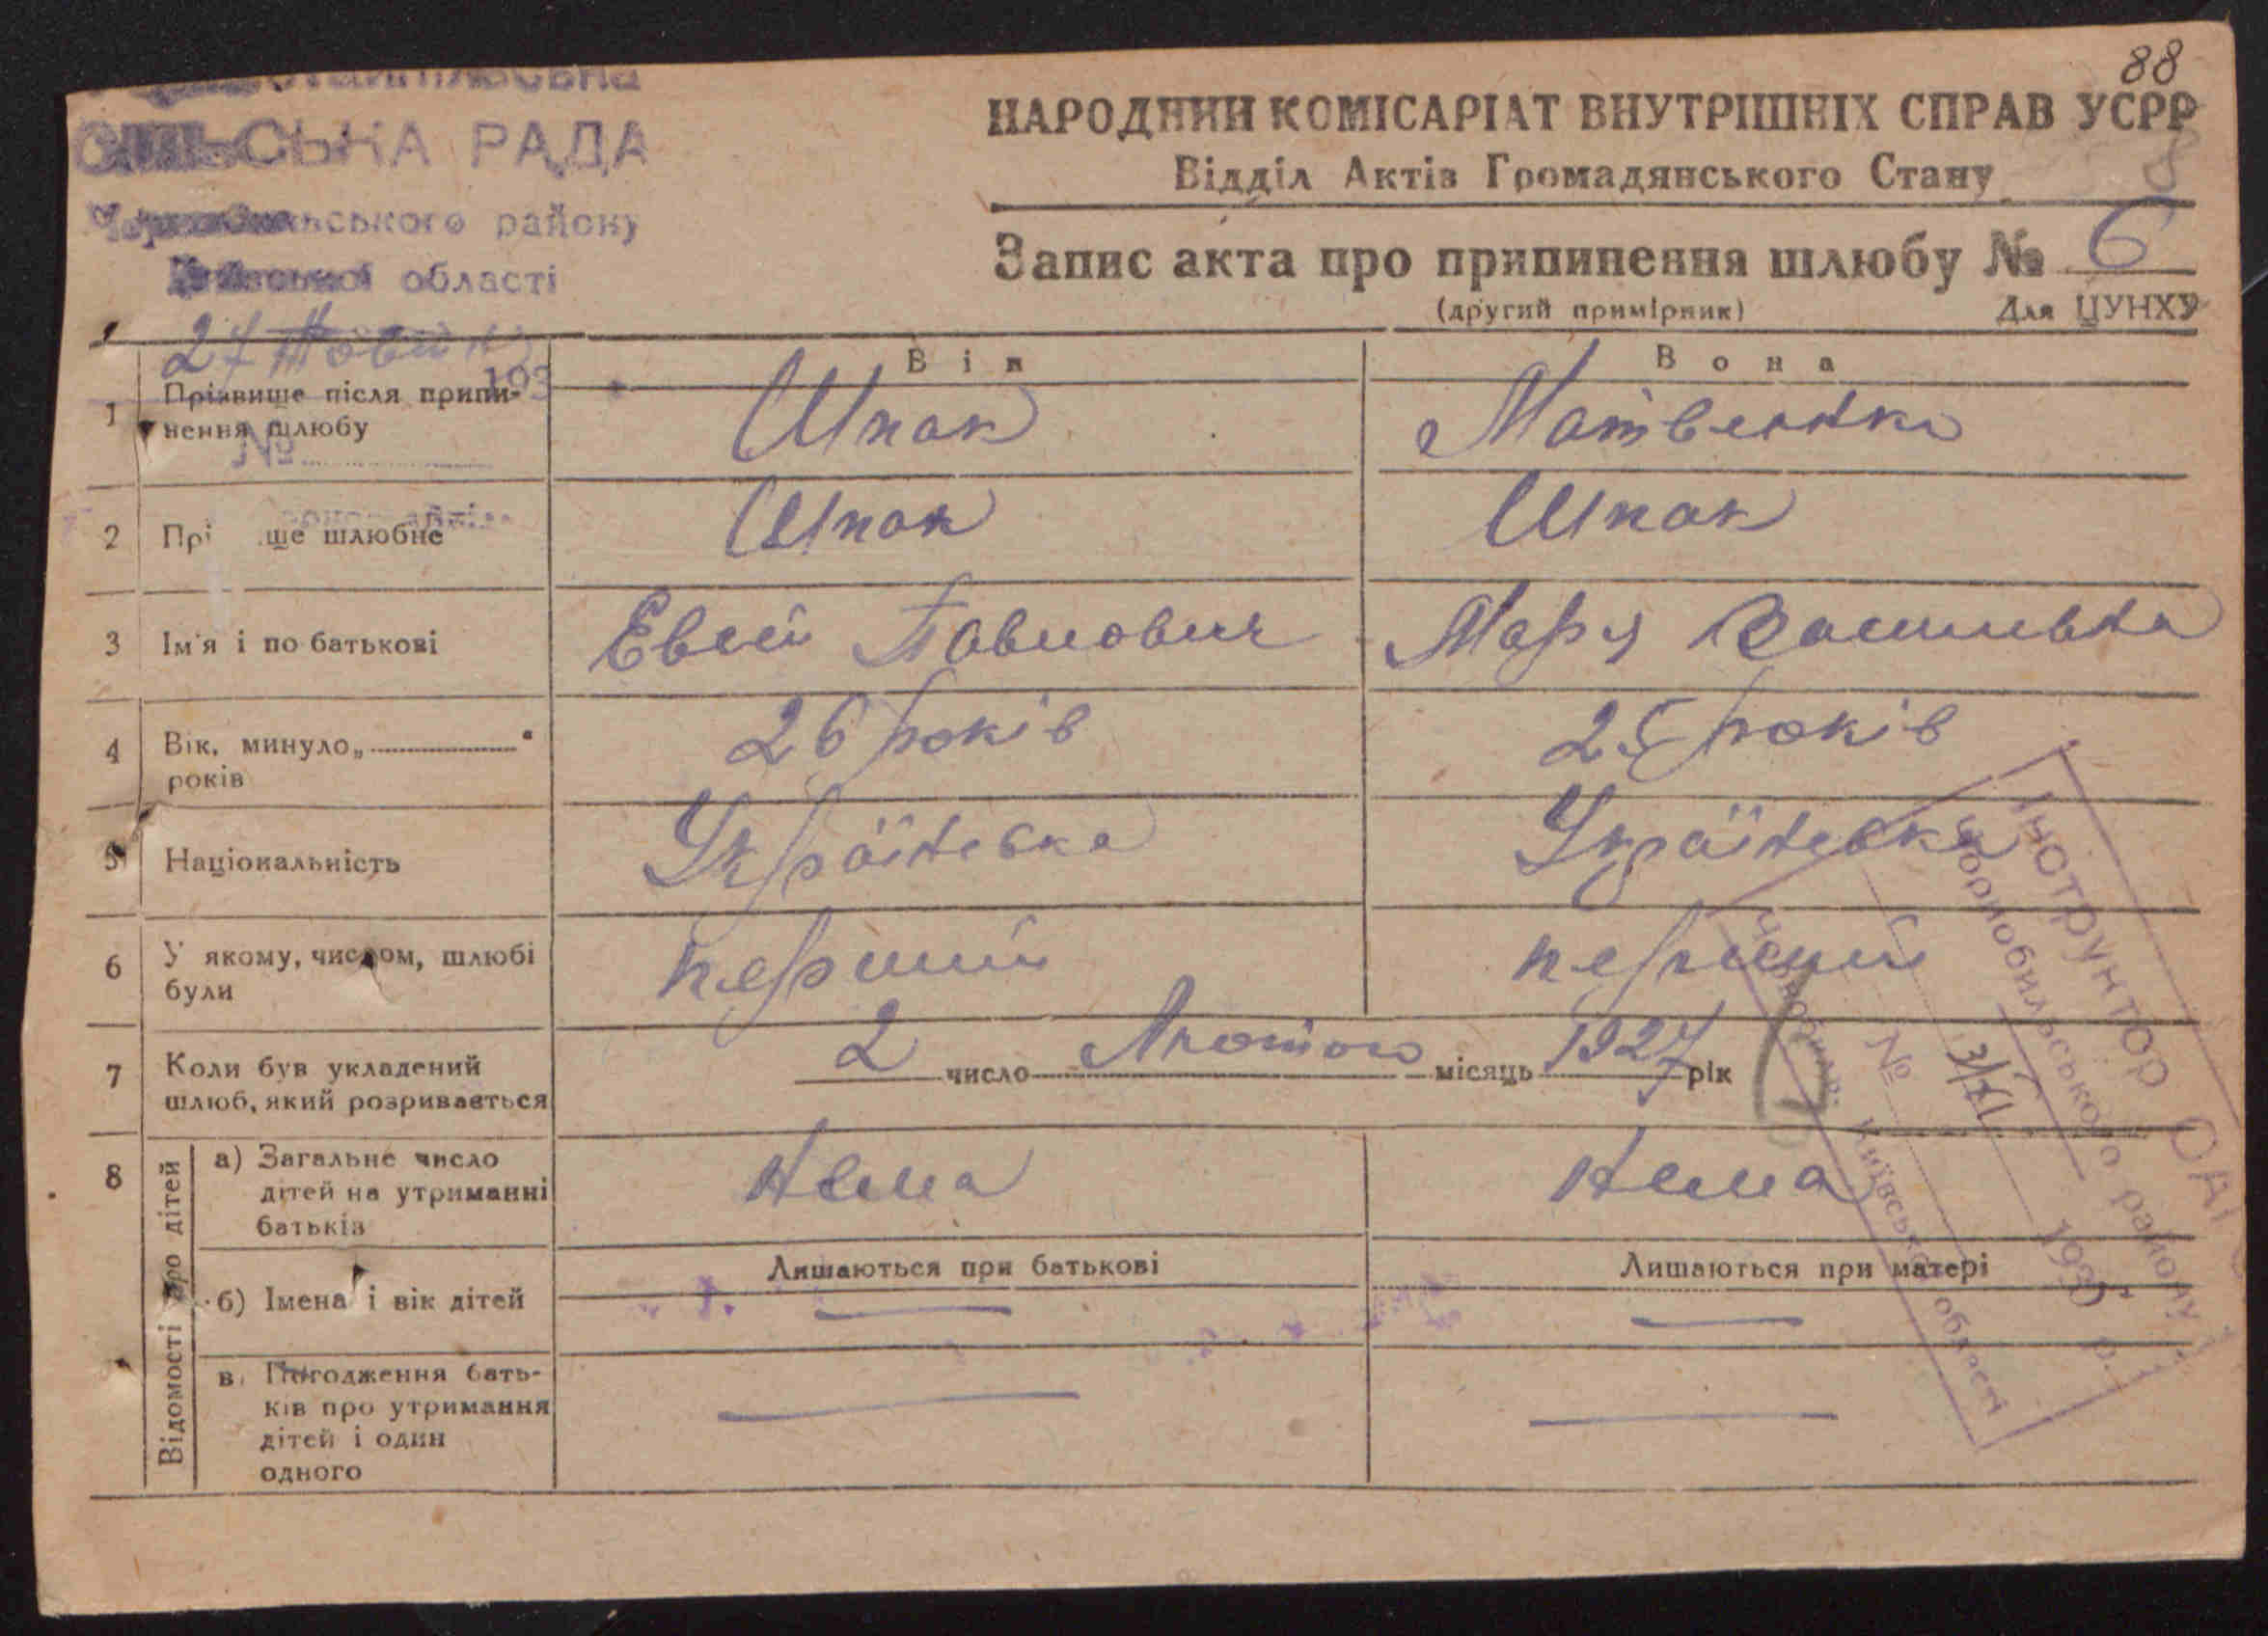 88
СІЛЬСЬКА РАДА
району
області
27
193
№
НАРОДНИЙ КОМІСАРІАТ ВНУТРІШНІХ СПРАВ УСРР
Відділ Актів Громадянського Стану
Запис акта про припинення шлюбу № 6
(другий примірник) Для ЦУНХУ
Він Вона
1 Прізвище після припи-
нення шлюбу Шпак Матвеенко
2 Прі ще шлюбне Шпак Шпак
3 Ім'я і по батькові Евсей Павлович Маря Василівна
4 Вік, минуло „ “
років 26 років 25 років
5 Національність Українська Українська
6 У якому, числом, шлюбі
були перший перший
7 Коли був укладений
шлюб, який розривається 2 число Лютого місяць 1927 рік
8 Відомості про дітей
а) Загальне число
дітей на утриманні
батьків нема нема
б) Імена і вік дітей Лишаються при батькові Лишаються при матері
в) Погодження бать-
ків про утримання
дітей і один
одного
Інструктор ЗАГС
Чорнобильського району
3/XI
№ 1935 р.
Чорнобиль Київської області